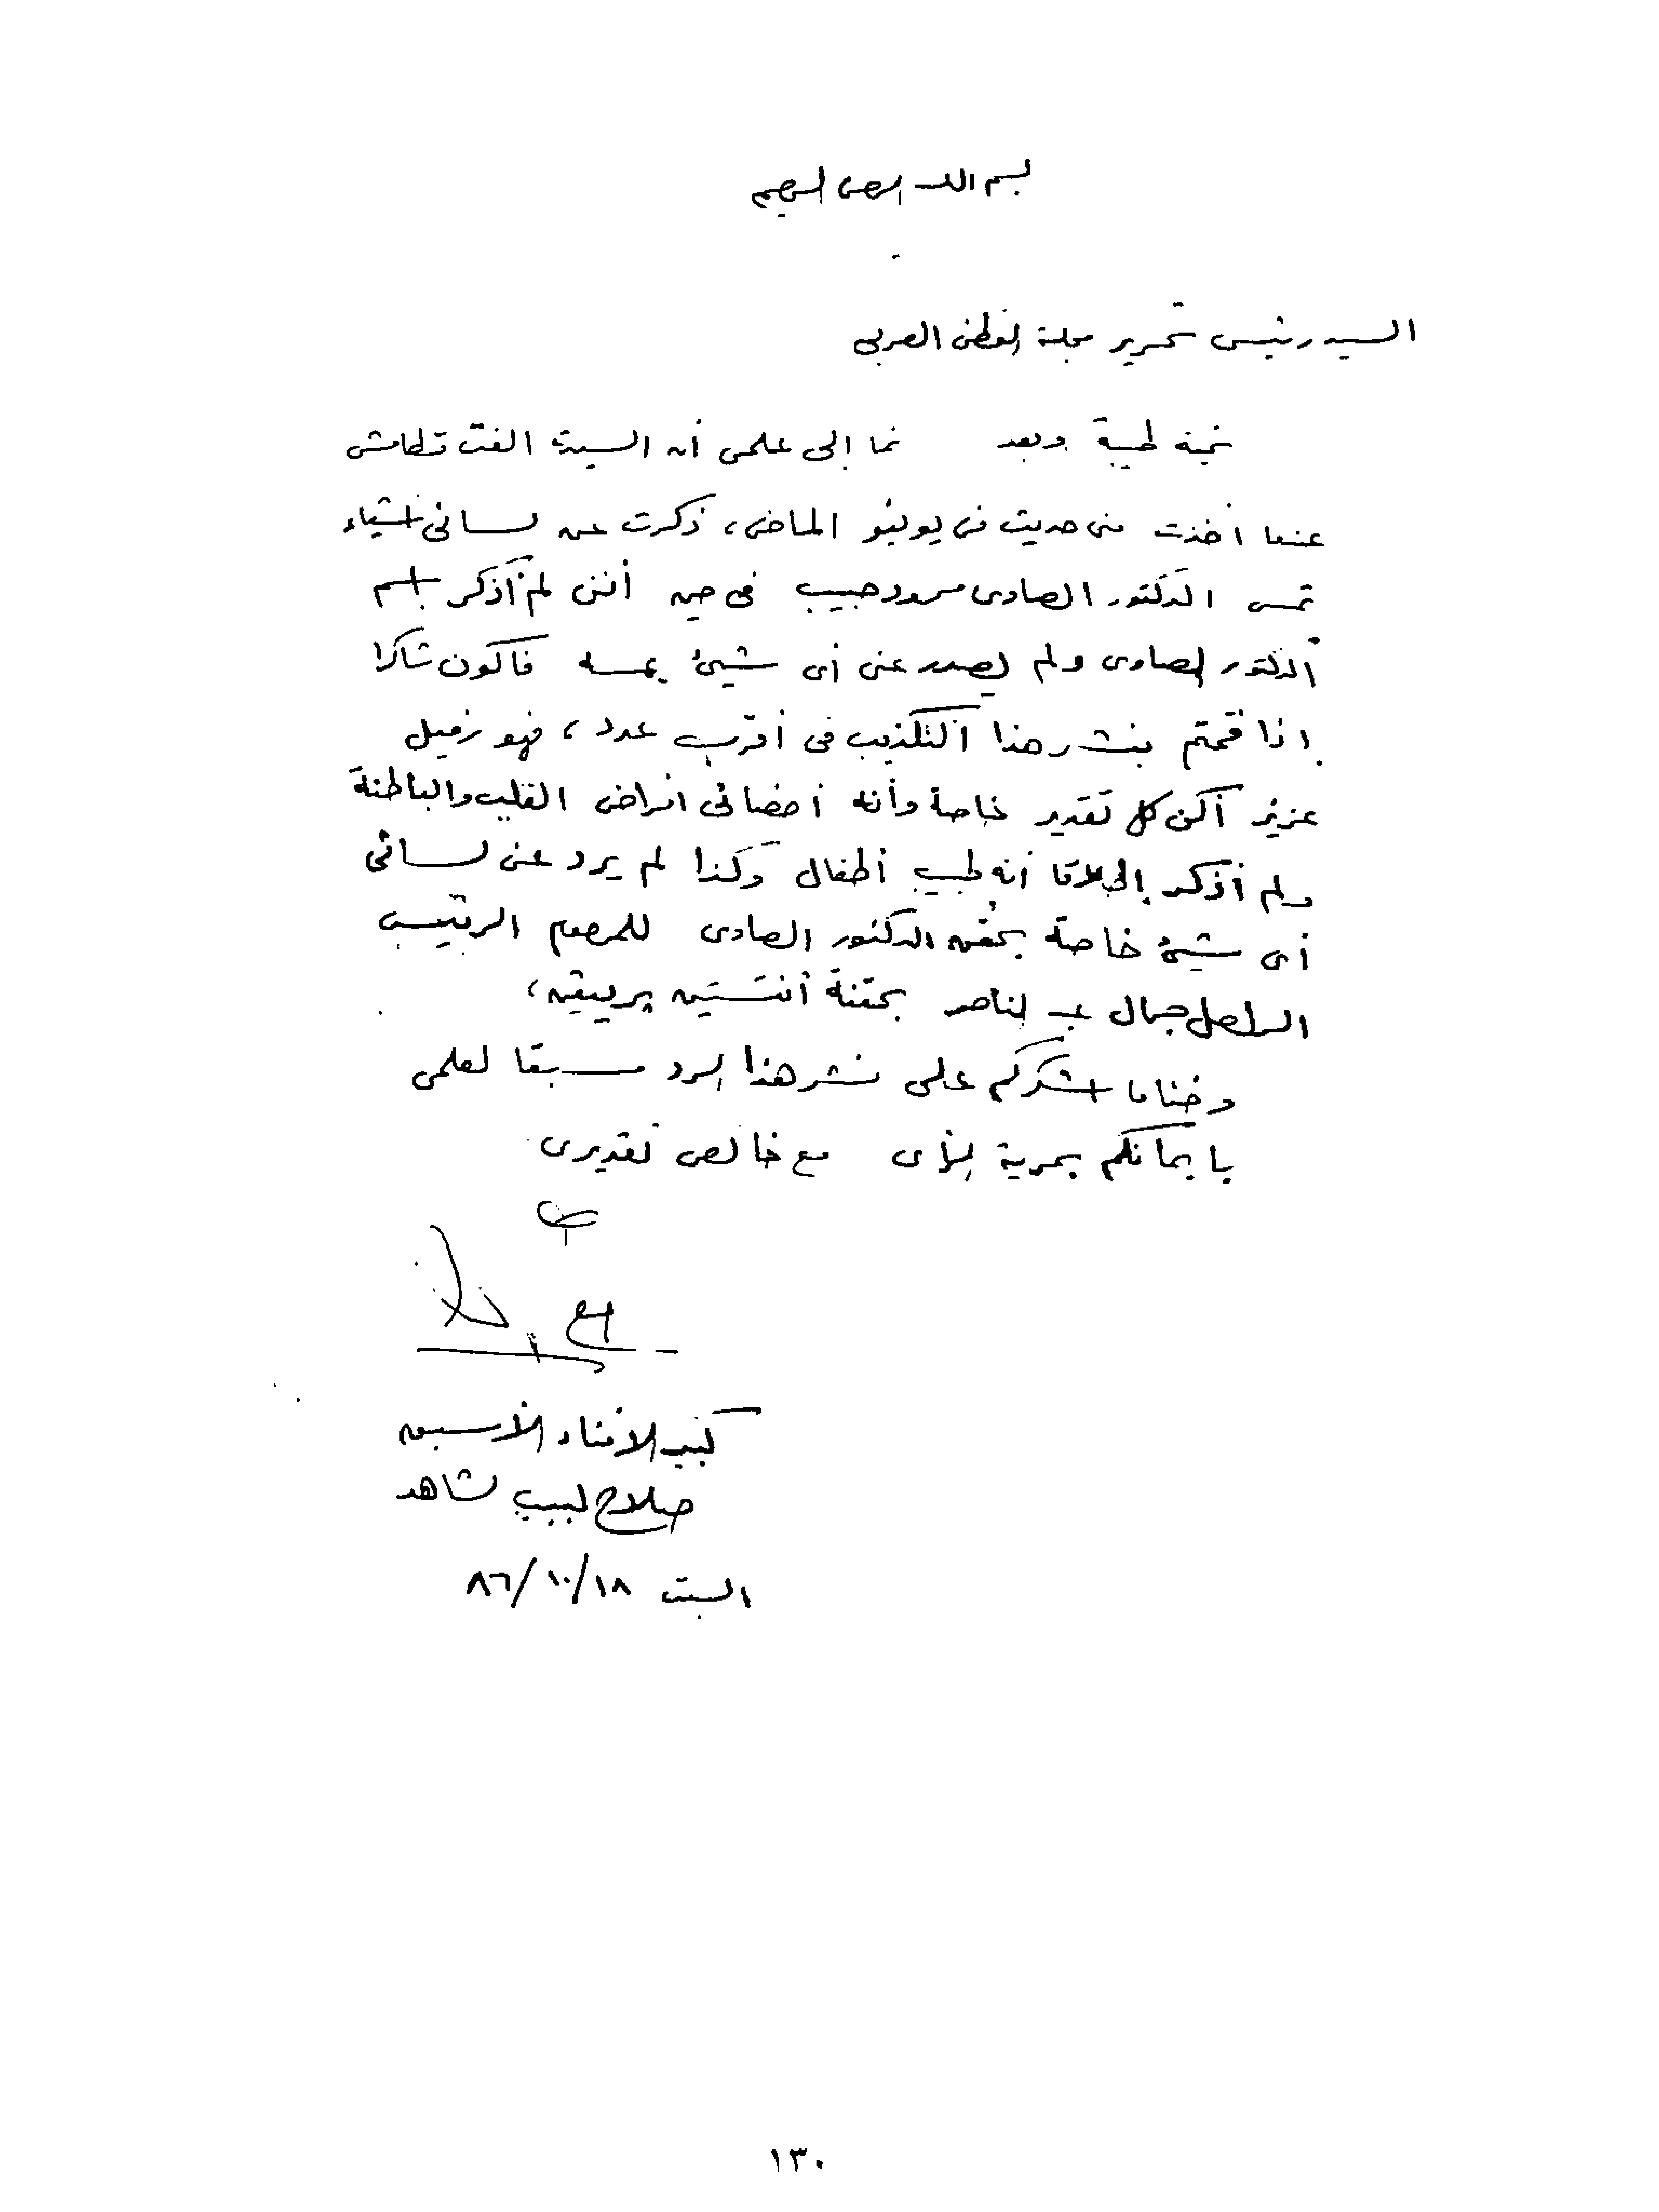 بسم الله الرحمن الرحيم
السيد رئيس تحرير مجلة الوطن العربى
تحية طيبة وبعد نما إلى علمى أن السيدة الفت
عندما أخذت منى حديث فى يونيو الماضى، ذكرت عن لسانى أشياء
تمس الدكتور الصاوى حبيب فى حين أننى لم أذكر اسم
الدكتور الصاوى ولم يصدر عنى أى شيئ يمسه فأكون شاكرا
إذا قمتم بنشر هذا التكذيب فى أقرب عدد، فهو زميل
عزيز أكن كل تقدير خاصة وأنه أخصائى امراض القلب والباطنة
ولم أذكر إطلاقا أنه طبيب أطفال وكذا لم يرد عن لسانى
أى شيئ خاصة بحقن الدكتور الصاوى للمرحوم الرئيس
الراحل جمال عبد الناصر بحقنة أنتستين بريفين،
وختاما أشكركم على نشر هذا الرد مسبقا لعلمى
بإيمانكم بحرية الرأى مع خالص تقديرى
كبير الأمناء الأسبق
صلاح لبيب شاهد
السبت ٨٦/١٠/١٨
١٣٠